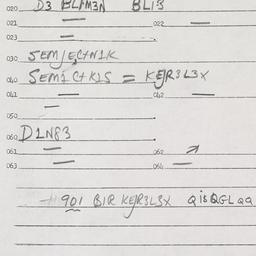 020 D3 BLFM3N BLI3
021 022
023
030 SEMJECTN1K
040 SEM1CTK1S = KEJR3L3X
041 042
050
060 D1N83
061 062
063 064
901 B1R KEJR3L3X Q1SQGLQQ